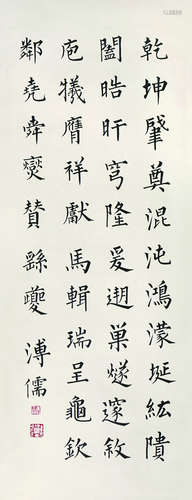 乾坤肇奠混沌鴻濛埏紘隤
闔皓旰穹隆爰遡巢燧邃敘
庖犧膺祥獻馬輯瑞呈龜欽
鄰堯舜爕賛繇夔
溥儒